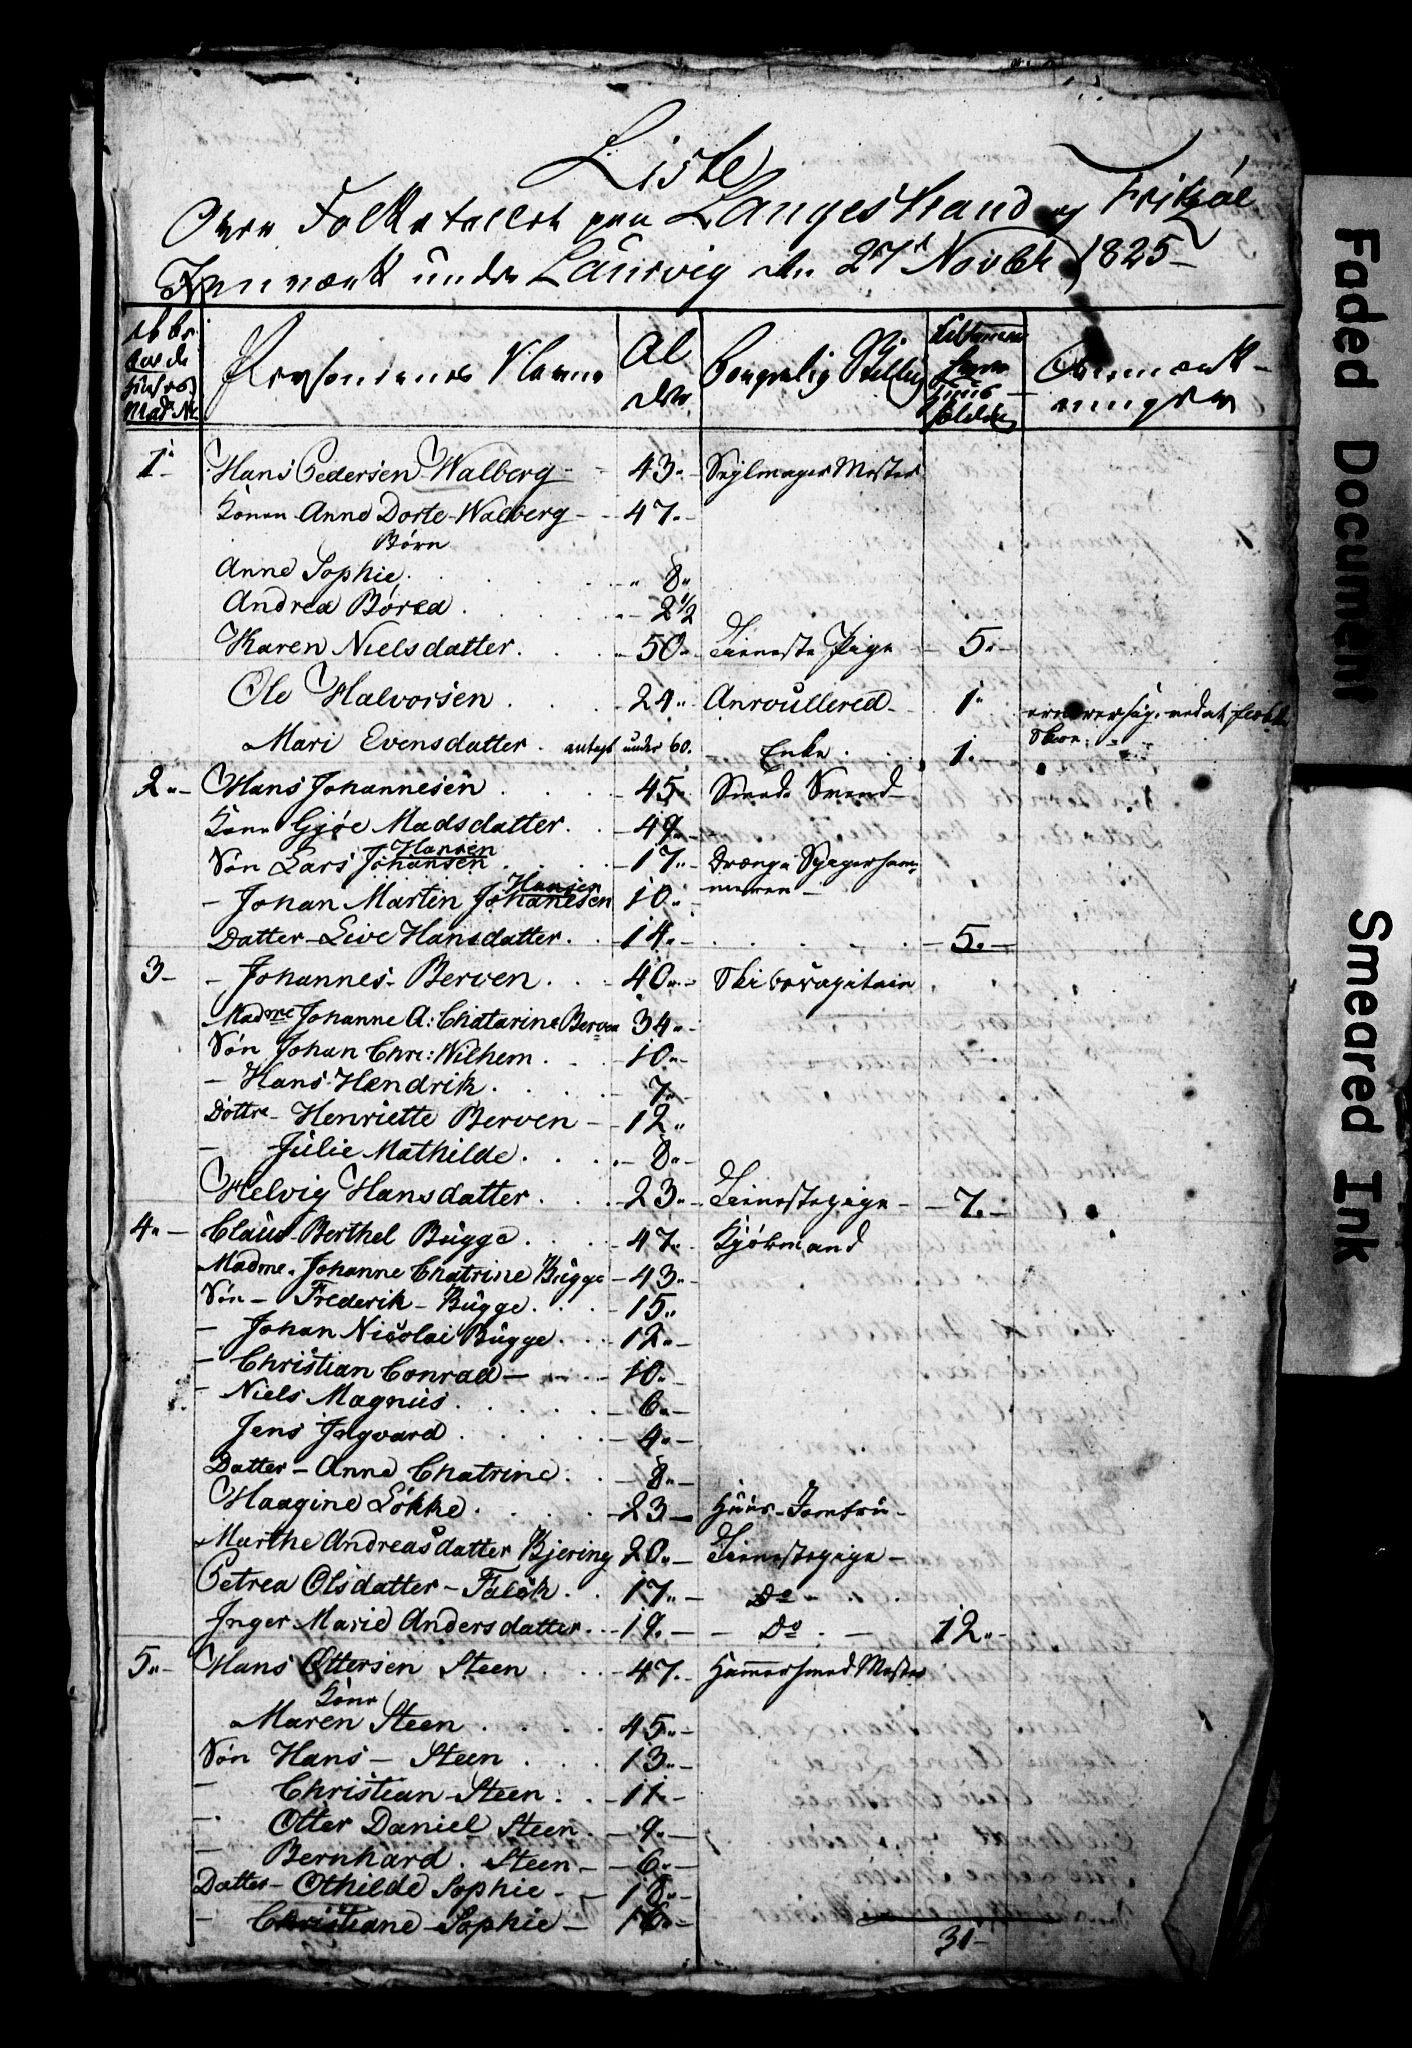 Liste
Over Folketallet paa Langestrand og Fritzöe
Jernværk under Laurvig den 27d Novbr 1825
Personernes Navne
Al
der
Borgerlig Stilling
Anmærk-
ninger
1 Hans Pedersen Walberg 43 Seylmager Mester
Konen Anne Dorte Walberg 47
Børn
Anne Sophie 8
Andrea Børea 2 1/2
Karen Nielsdatter 50 Tieneste Pige 5
Ole Halvorsen 24 Anroullered 1
Mari Evensdatter antagl under 60. Enke 1
2 Hans Johannesen 45 Smede Svend
Kone Gjøe Madsdatter 49
Hansen
Søn Lars Johansen 17 Drænge
Hansen
Johan Martin Johanesen 10
Datter Live Hansdatter 14 5
3 Johannes Berven 40 Skibscapitain
Madme Johanne A: Chatarine Berven 34
Søn Johan Chre: Wilhem 10
Hans Hendrik 7
Döttre Henriette Berven 12
Julie Mathilde 8
Helvig Hansdatter 23 Tienestepige 7
4 Claus Berthel Bugge 47 Kjøbmand
Madme Johanne Chatrine Bugge 43
Søn Frederik Bugge 15
Johan Nicolai Bugge 12
Christian Conrad 10
Niels Magnus 6
Jens Ingvard 4
Datter Anne Chatrine 8
Maagine Lökke 23 Huus-Jomfru
Marthe Andreasdatter Bjering 20 Tienestepige
Petrea Olsdatter Falck 17 Do
Inger Marie Andersdatter 19 Do 12
5 Hans Ottersen Steen 47 Hammersmed Mester
Kone
Maren Steen 45
Søn Hans Steen 13
Christian Steen 11
Otter Daniel Steen 9
Bernhard Steen 6
Datter Othilde Sophie 18
Christiane Sophie 16
31
Faded Document
Smeared Ink